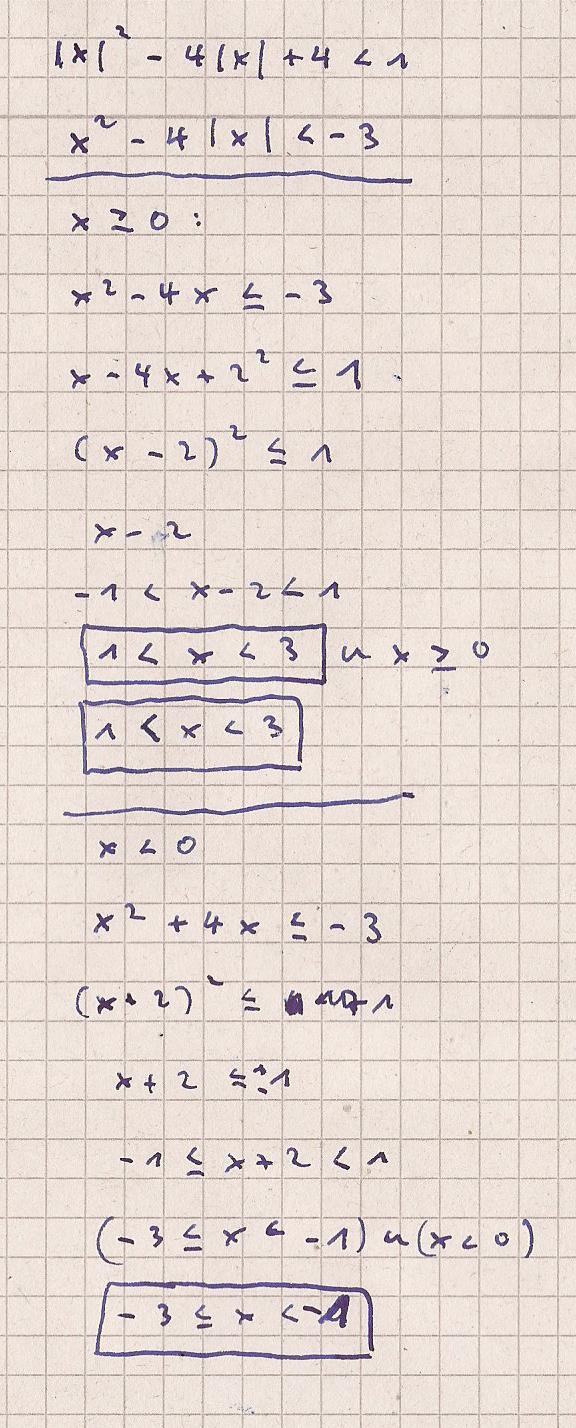 |x|² - 4|x| + 4 < 1
x² - 4|x| < -3
x ≥ 0 :
x² - 4x ≤ -3
x - 4x + 2² ≤ 1
(x - 2)² ≤ 1
x - 2
-1 < x - 2 < 1
1 < x < 3 u x ≥ 0
1 < x < 3
x < 0
x² + 4x ≤ -3
(x + 2)² ≤ 1
x + 2 ≤ ±1
-1 ≤ x + 2 < 1
(-3 ≤ x < -1) u (x < 0)
-3 ≤ x < -1